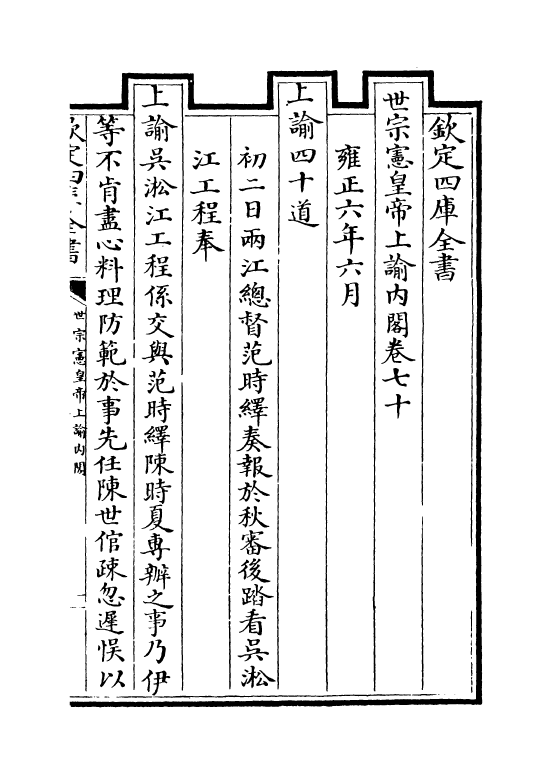 欽定四庫全書
世宗憲皇帝上諭內閣卷七十
雍正六年六月
上諭四十道
初二日兩江總督范時繹奏報於秋審後踏看吳淞
江工程奉
上諭吳淞江工程係交與范時繹陳時夏專辦之事乃伊
等不肯盡心料理防範於事先任陳世倌疎忽遲悮以
欽定四庫全書
世宗憲皇帝上諭內閣
一